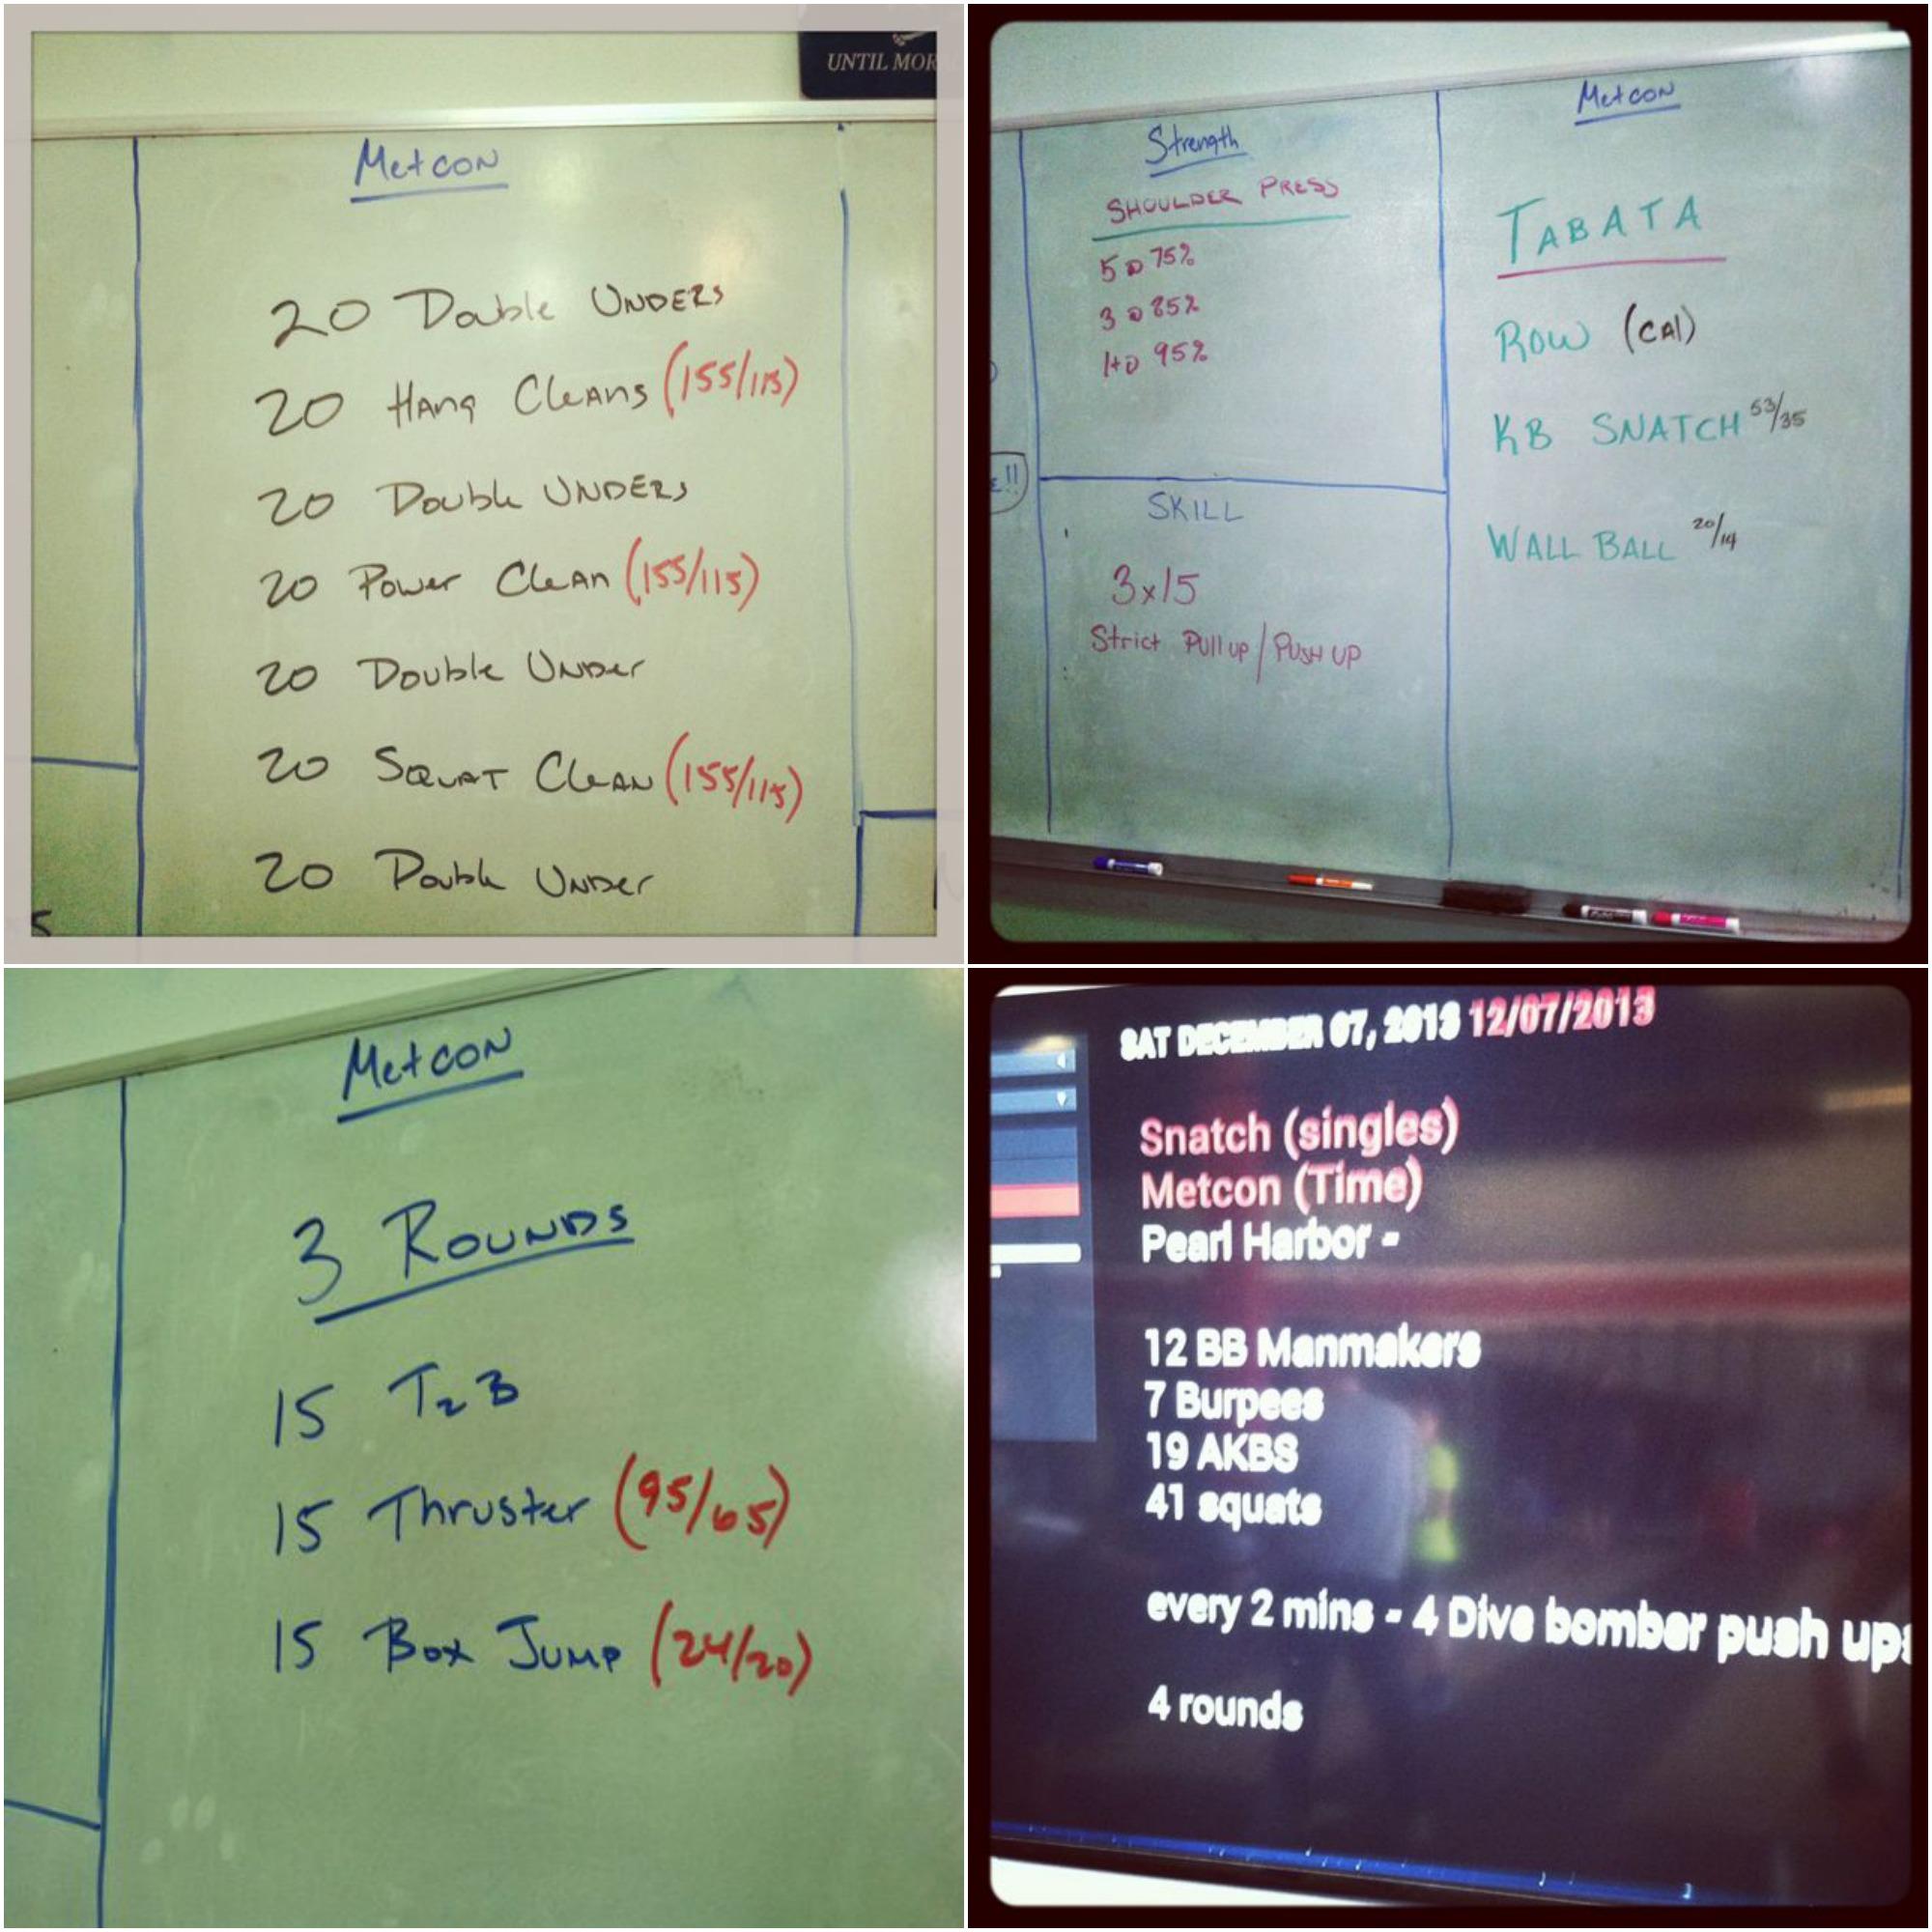 UNTIL MOR
Metcon
20 Double Unders
20 Hang Cleans (155/115)
20 Double Unders
20 Power Clean (155/115)
20 Double Under
20 Squat Clean (155/115)
20 Double Under
5
Strength
SHOULDER PRESS
5 @ 75%
3 @ 85%
1+@ 95%
SKILL
3x15
Strict Pull up / Push up
!!
Metcon
TABATA
ROW (CAl)
KB SNATCH 53/35
WALL BALL 20/14
Metcon
3 ROUNDS
15 T2B
15 Thruster (95/65)
15 Box Jump (24/20)
SAT DECEMBER 07, 2013 12/07/2013
Snatch (singles)
Metcon (Time)
Pearl Harbor -
12 BB Manmakers
7 Burpees
19 AKBS
41 squats
every 2 mins - 4 Dive bomber push ups
4 rounds